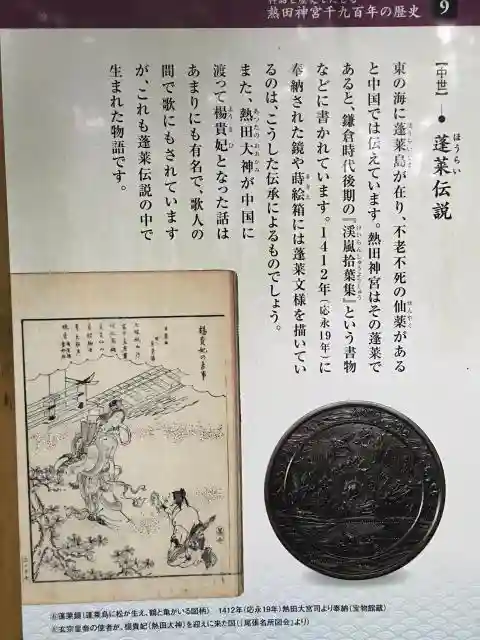 熱田神宮千九百年の歴史
9
【中世】
蓬莱伝説
ほうらい
東の海に蓬莱島が在り、不老不死の仙薬がある
と中国では伝えています。熱田神宮はその蓬莱で
あると、鎌倉時代後期の『渓嵐拾葉集』という書物
などに書かれています。1412年(応永19年)に
奉納された鏡や蒔絵箱には蓬莱文様を描いてい
るのは、こうした伝承によるものでしょう。
また、熱田大神が中国に
渡って楊貴妃となった話は
あまりにも有名で、歌人の
間で歌にもされています
が、これも蓬莱伝説の中で
生まれた物語です。
楊貴妃の古事
蓬莱鏡(蓬莱島に松が生え、鶴と亀がいる図柄) 1412年(応永19年)熱田大宮司より奉納(宝物館蔵)
玄宗皇帝の使者が、楊貴妃(熱田大神)を迎えに来た図(「尾張名所図会」より)